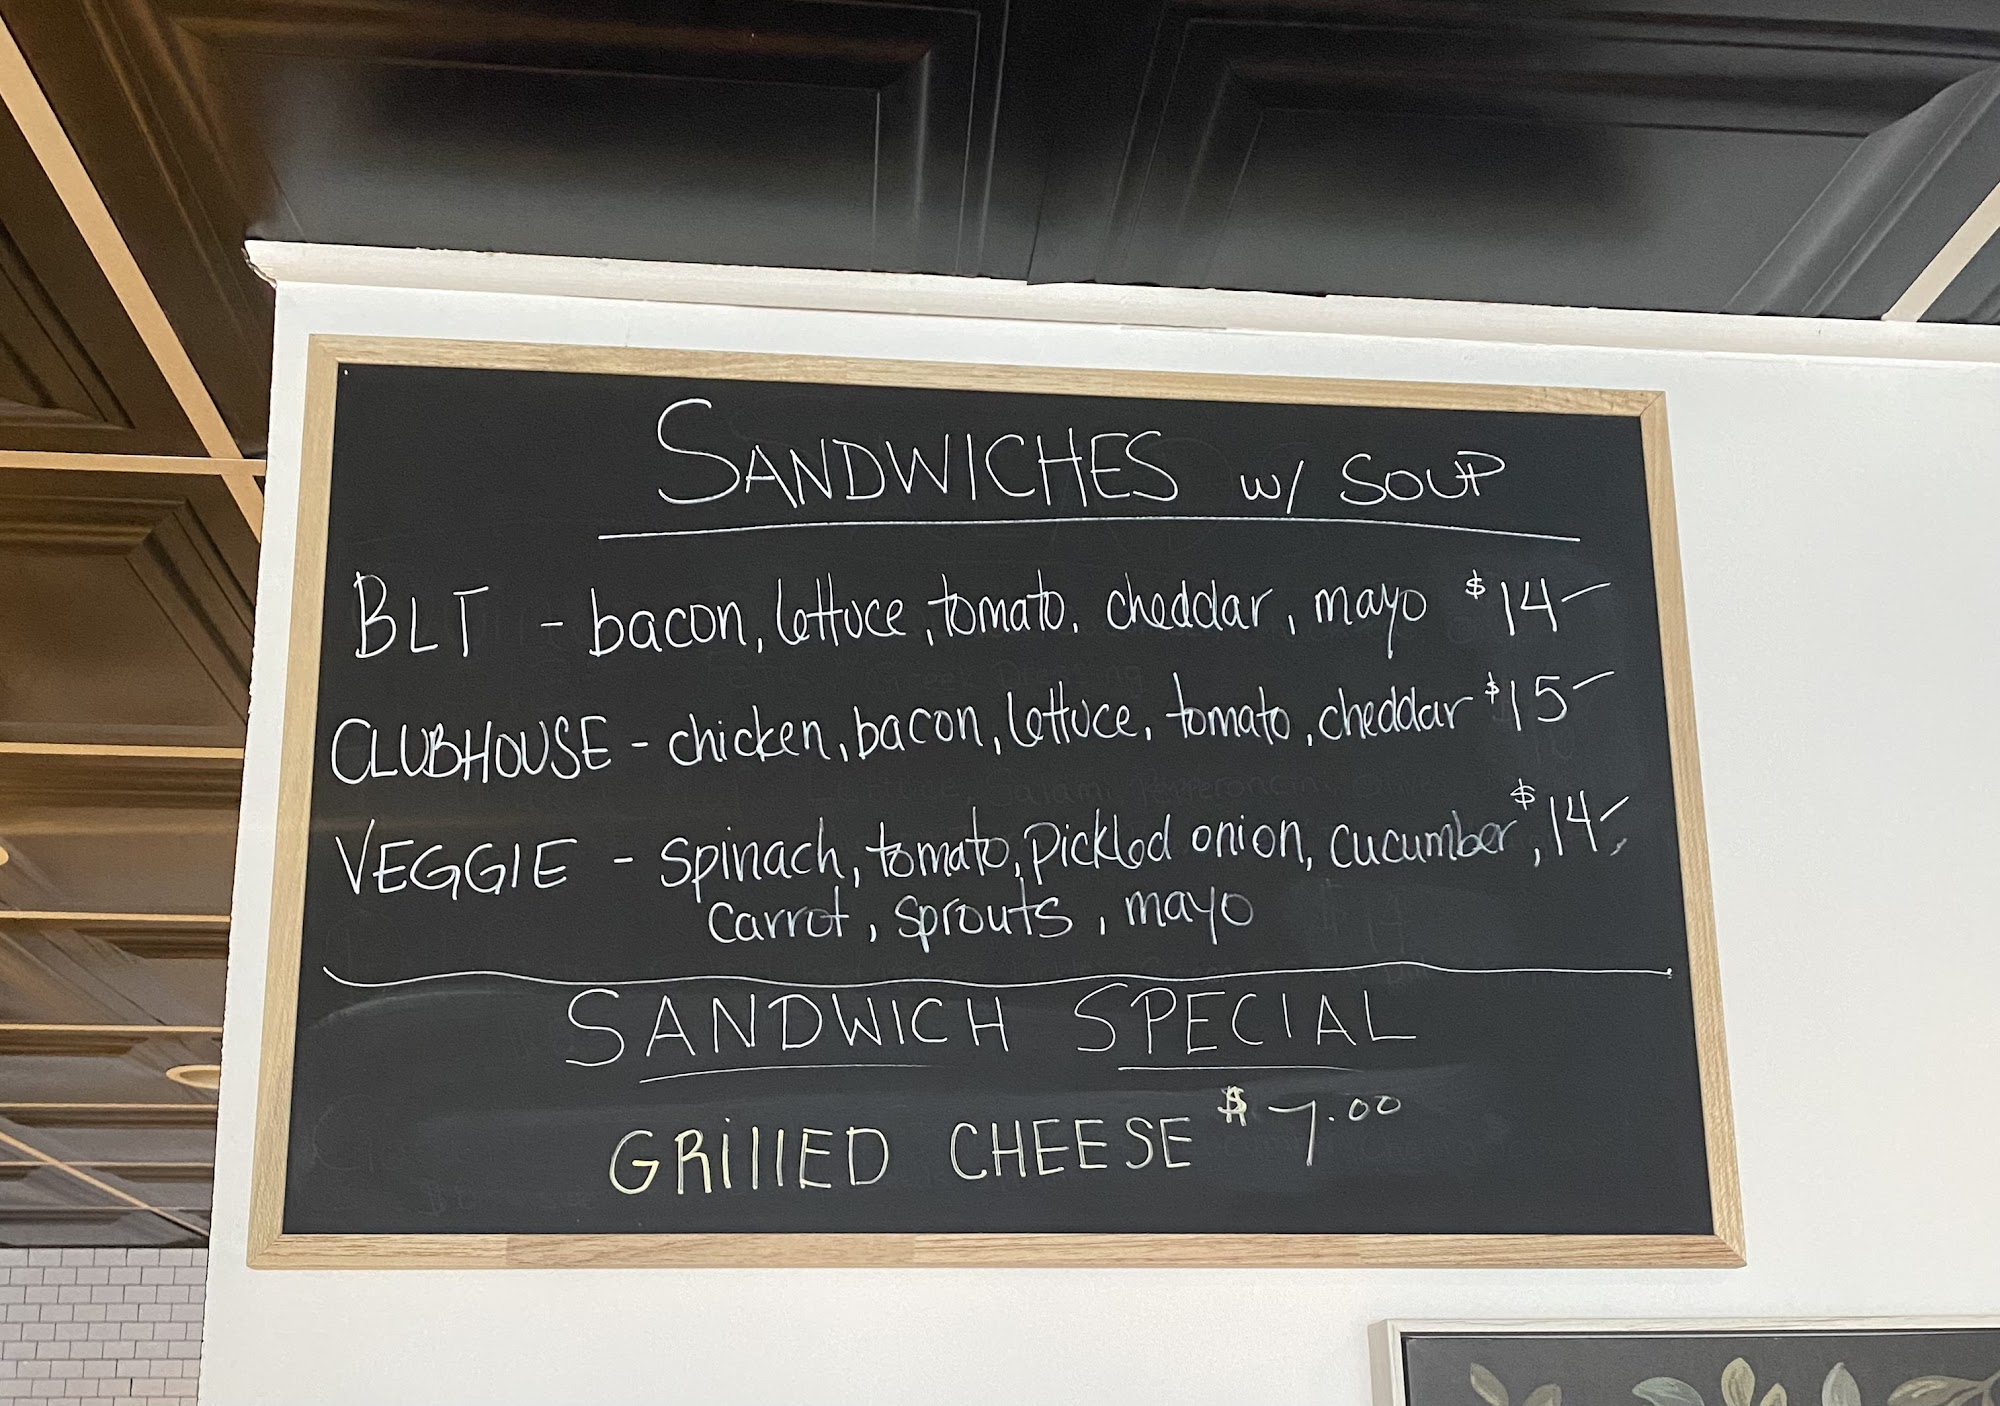 SANDWICHES w/ SOUP
BLT - bacon, lettuce, tomato, cheddar, mayo $14-
CLUBHOUSE - chicken, bacon, lettuce, tomato, cheddar $15-
VEGGIE - spinach, tomato, pickled onion, cucumber, $14-
carrot, sprouts, mayo
SANDWICH SPECIAL
GRillED CHEESE $7.00